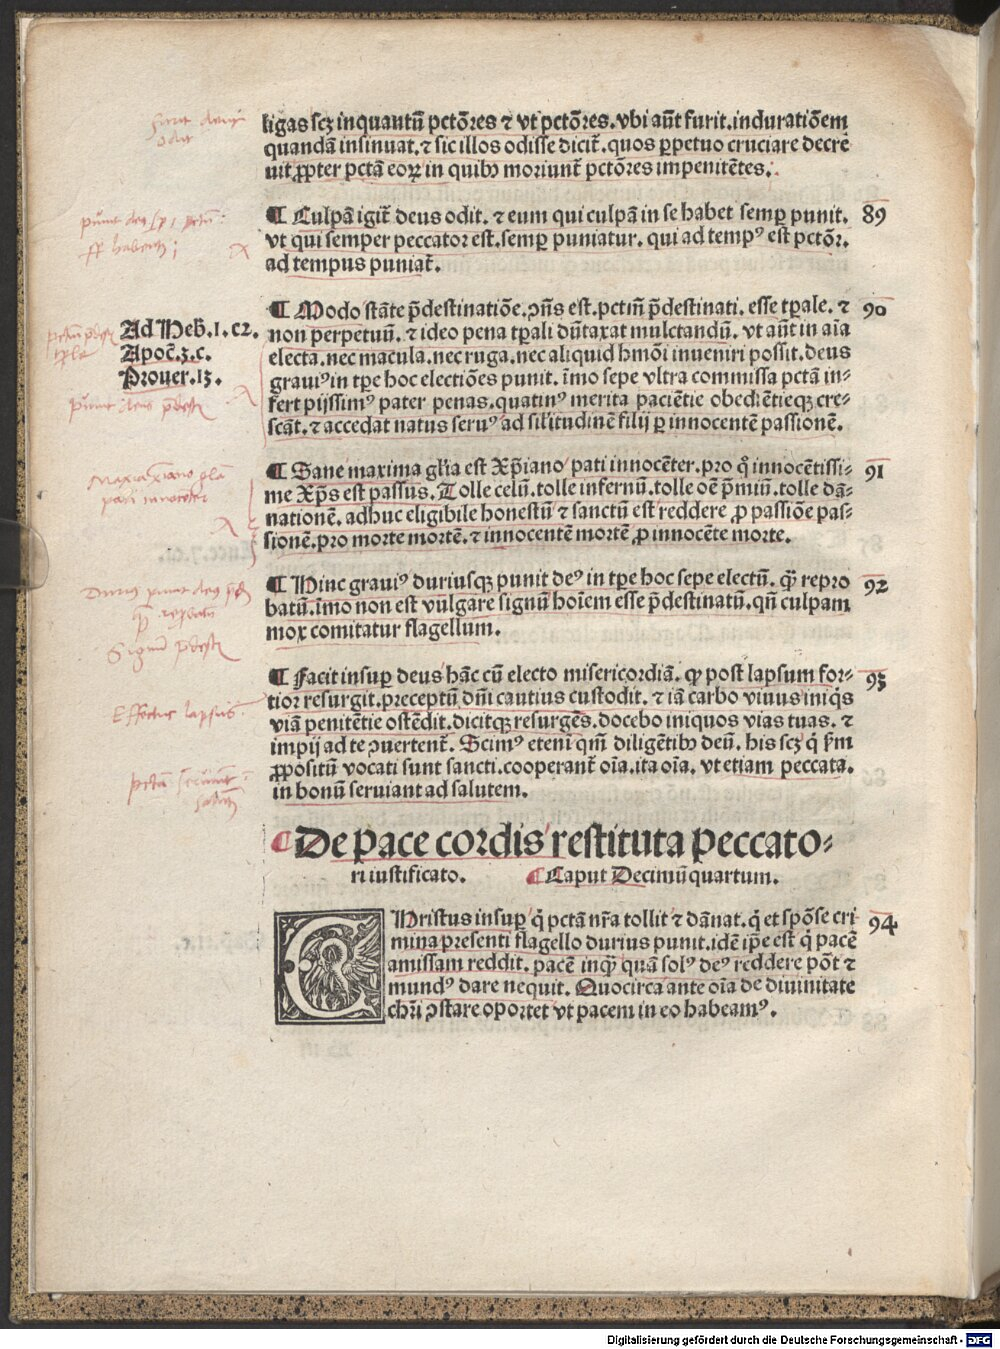 ligas scꝫ inquantū pctōres ⁊ vt pctōres. vbi aūt furit. induratiōem
quandā insinuat. ⁊ sic illos odisse dicit̄. quos ꝑpetuo cruciare decre
uit ꝓpter pctā eoꝝ in quibꝰ moriunt̄ pctōres impenitētes.
¶ Culpā igit̄ deus odit. ⁊ eum qui culpā in se habet semꝑ punit. 89
vt qui semper peccator est. semꝑ puniatur. qui ad tempꝰ est pctōr.
ad tempus puniat̄.
¶ Modo stāte p̄destinatiōe. ꝯn̄s est. pctm̄ p̄destinati. esse tꝑale. ⁊ 90
non perpetuū. ⁊ ideo pena tꝑali dūtaxat mulctandū. vt aūt in aīa
electa. nec macula. nec ruga. nec aliquid hmōi inueniri possit. deus
grauiꝰ in tꝑe hoc electiōes punit. īmo sepe vltra commissa pctā in⸗
fert pijssimꝰ pater penas. quatinꝰ merita paciētie obediētieqꝫ cre⸗
scāt. ⁊ accedat natus seruꝰ ad sil̄itudinē filij ꝑ innocentē passionē.
Ad Heb̄. 1. c2.
Apoc̄. 3. c.
Prouer. 13.
¶ Sane maxima gl̄ia est Xp̄iano pati innocēter. pro q̊ innocētissi⸗ 91
me Xp̄s est passus. Tolle celū. tolle infernū. tolle oē p̄miū. tolle dā⸗
nationē. adhuc eligibile honestū ⁊ sanctū est reddere ꝓ passiōe pas⸗
sionē. pro morte mortē. ⁊ innocentē mortē ꝓ innocēte morte.
¶ Hinc grauiꝰ duriusqꝫ punit deꝰ in tꝑe hoc sepe electū. q̄ꝫ repro 92
batū. īmo non est vulgare signū hoīem esse p̄destinatū. qn̄ culpam
mox comitatur flagellum.
¶ Facit insuꝑ deus hāc cū electo misericordiā. ꝙ post lapsum for⸗ 93
tior resurgit. preceptū dn̄i cautius custodit. ⁊ iā carbo viuus iniq̊s
viā penitētie ostēdit. dicitqꝫ resurgēs. docebo iniquos vias tuas. ⁊
impij ad te ꝯuertent̄. Scimꝰ eteni qm̄ diligētibꝰ deū. his scꝫ q̇ sm̄
ꝓpositū vocati sunt sancti. cooperant̄ oīa. ita oīa. vt etiam peccata.
in bonū seruiant ad salutem.
¶ De pace cordis restituta peccato⸗
ri iustificato. ¶ Caput Decimūquartum.
CHristus insuꝑ q̇ pctā nr̄a tollit ⁊ dānat. q̇ et spōse cri 94
mina presenti flagello durius punit. idē ip̄e est q̇ pacē
amissam reddit. pacē inq̄ꝫ quā solꝰ deꝰ reddere pōt ⁊
mundꝰ dare nequit. Quocirca ante oīa de diuinitate
chr̄i ꝯstare oportet vt pacem in eo habeamꝰ.
Digitalisierung gefördert durch die Deutsche Forschungsgemeinschaft - DFG